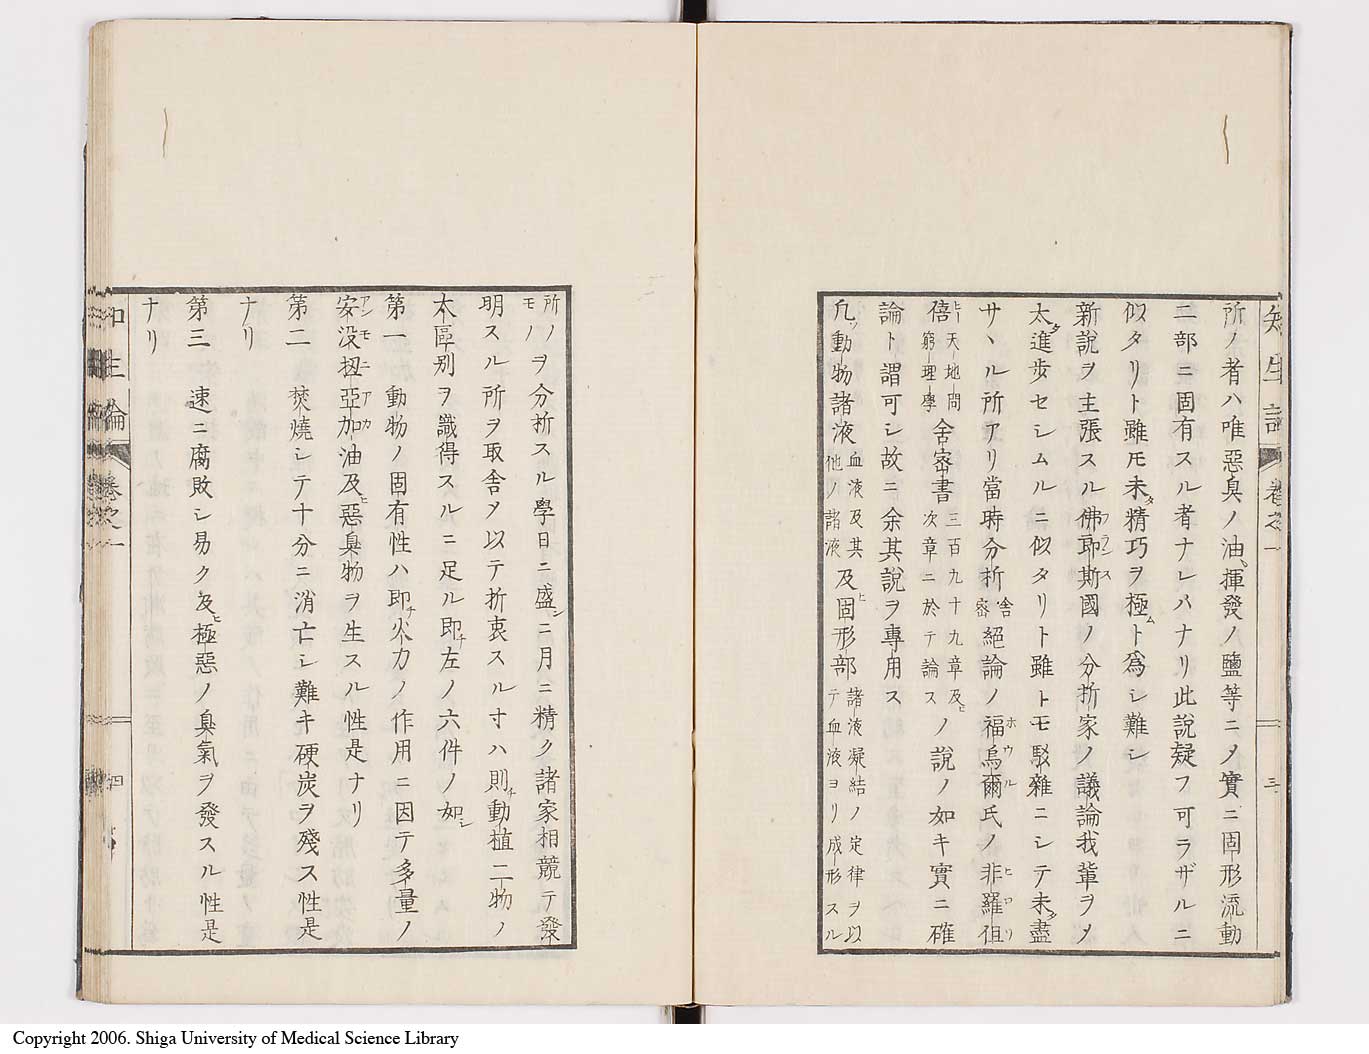 知生論 卷之一 三
所ノ者ハ唯惡臭ノ油、揮發ノ鹽等ニメ實ニ固形流動
二部ニ固有スル者ナレバナリ此說疑フ可ラザルニ
似タリト雖𪜈未タ精巧ヲ極ムト爲シ難シ
新說ヲ主張スル佛郎斯國ノ分析家ノ議論我輩ヲメ
フランス
太タ進步セシムルニ似タリト雖トモ駁雜ニシテ未タ盡
サヽル所アリ當時分析舍密絕論ノ福烏爾氏ノ非羅俎
ホウウル ヒロリ
僖ヒ天地間窮理學舍密書三百九十九章及ヒ次章ニ於テ論スノ說ノ如キ實ニ確
論ト謂可シ故ニ余其說ヲ專用ス
凡ソ動物諸液血液及其他ノ諸液及ヒ固形部諸液凝結ノ定律ヲ以テ血液ヨリ成形スル
所ノモノヲ分析スル學日ニ盛シニ月ニ精ク諸家相競テ發
明スル所ヲ取舍メ以テ折衷スル寸ハ則チ動植二物ノ
本區別ヲ識得スルニ足ル即チ左ノ六件ノ如シ
第一 動物ノ固有性ハ即チ火力ノ作用ニ因テ多量ノ
安没扭亞加油及ヒ惡臭物ヲ生スル性是ナリ
アンモニアカ
第二 焚燒シテ十分ニ消亡シ難キ硬炭ヲ殘ス性是
ナリ
第三 速ニ腐敗シ易ク及ヒ極惡ノ臭氣ヲ發スル性是
ナリ
知生論 卷之一 四
Copyright 2006. Shiga University of Medical Science Library